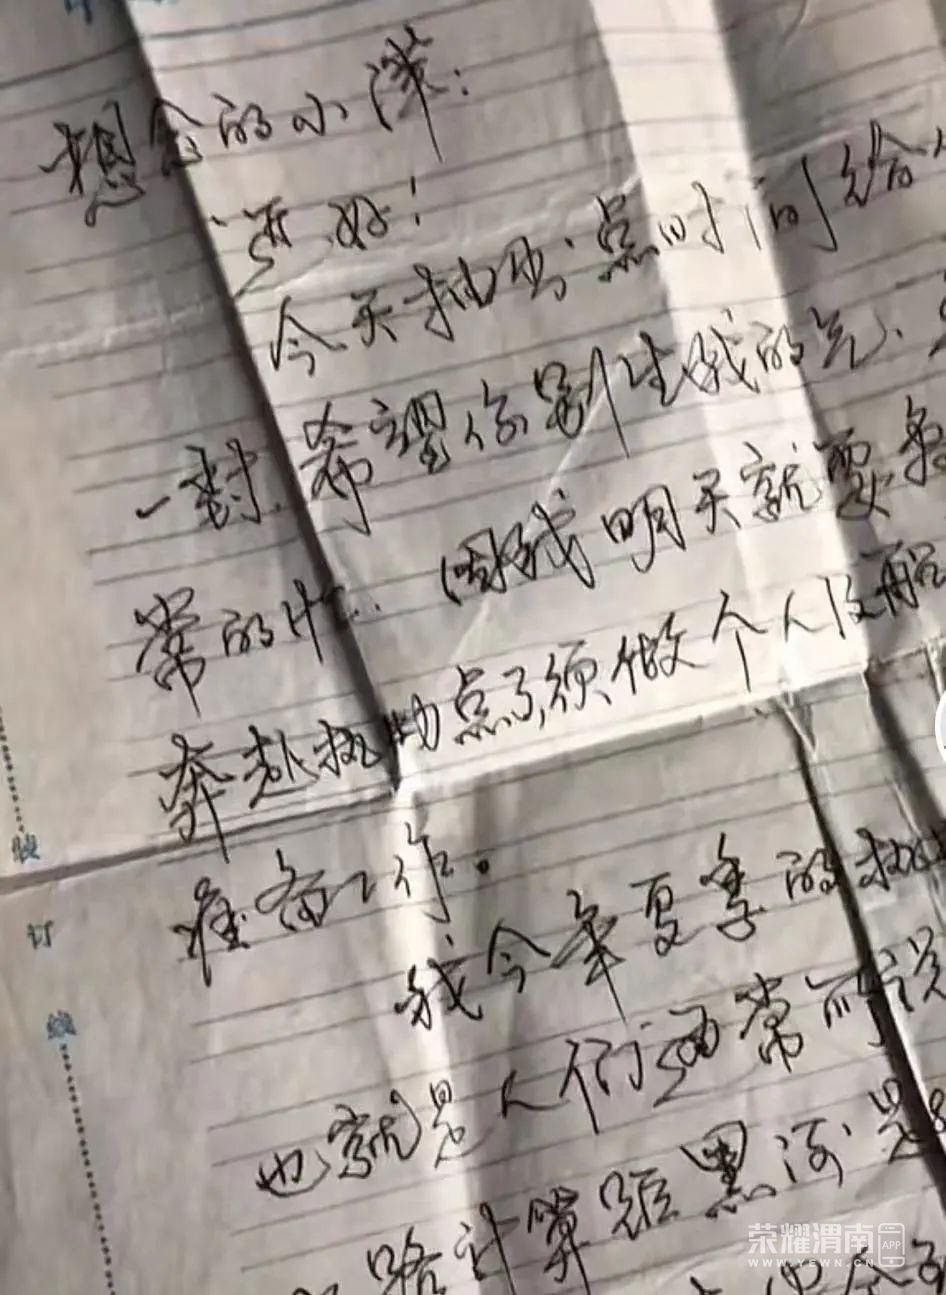 想念的小洋:
还好!
今天抽出点时间给
一封,希望你别生我的气、
常的忙.. 因我明天就要
奔赴执勤点了,须做个人
准备工作。
我今年夏季的执
也就是人们通常所说
路计算距黑河
装
订
线
荣耀渭南 APP
WWW.YEWN.CN